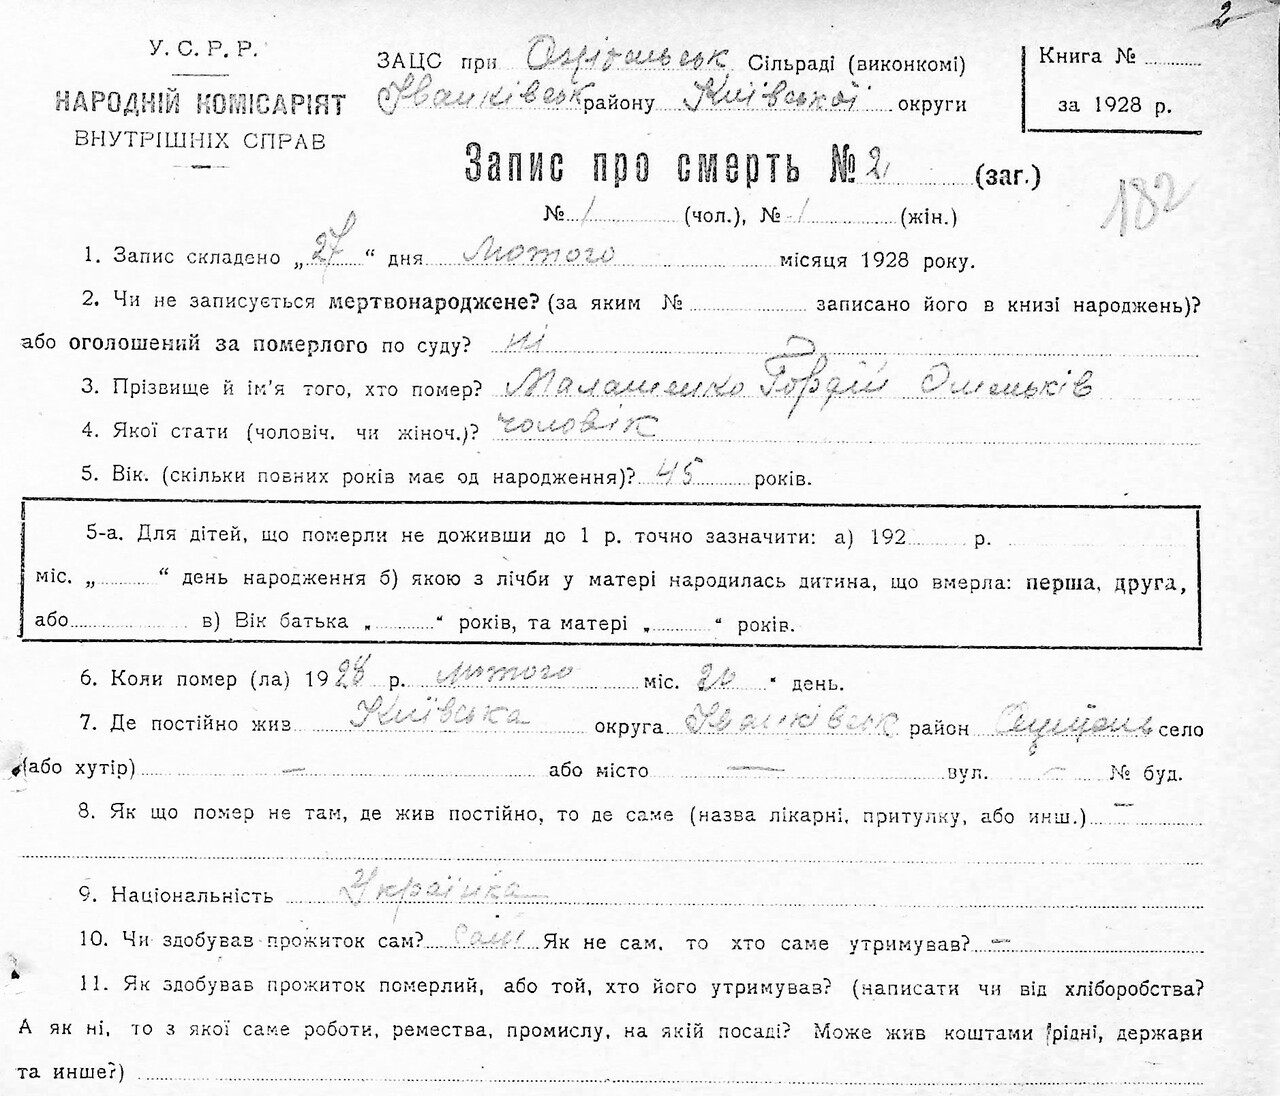 2
У. С. Р. Р.
НАРОДНІЙ КОМІСАРІЯТ
ВНУТРІШНІХ СПРАВ
ЗАЦС при Сільраді (виконкомі)
Іванківськ району Київської округи
Книга №
за 1928 р.
Запис про смерть № 2 (заг.)
№ 1 (чол.), № 1 (жін.)
182
1. Запис складено „27“ дня Лютого місяця 1928 року.
2. Чи не записується мертвонароджене? (за яким № записано його в книзі народжень)?
або оголошений за померлого по суду? ні
3. Прізвище й ім’я того, хто помер? Малашенко Гордій Омельків
4. Якої стати (чоловіч. чи жіноч.)? чоловік
5. Вік. (скільки повних років має од народження)? 45 років.
5-а. Для дітей, що померли не доживши до 1 р. точно зазначити: а) 192 р.
міс. „ “ день народження б) якою з лічби у матері народилась дитина, що вмерла: перша, друга,
або в) Вік батька „ “ років, та матері „ “ років.
6. Коли помер (ла) 1928 р. лютого міс. 20 “ день.
7. Де постійно жив Київська округа Іванківськ район село
(або хутір) — або місто — вул. — № буд.
8. Як що помер не там, де жив постійно, то де саме (назва лікарні, притулку, або инш.) —
9. Національність Українка
10. Чи здобував прожиток сам? сам Як не сам, то хто саме утримував? —
11. Як здобував прожиток померлий, або той, хто його утримував? (написати чи від хліборобства?
А як ні, то з якої саме роботи, ремества, промислу, на якій посаді? Може жив коштами рідні, держави
та инше?)